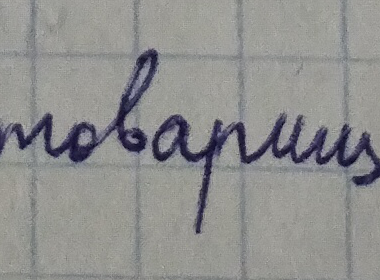 товарищ